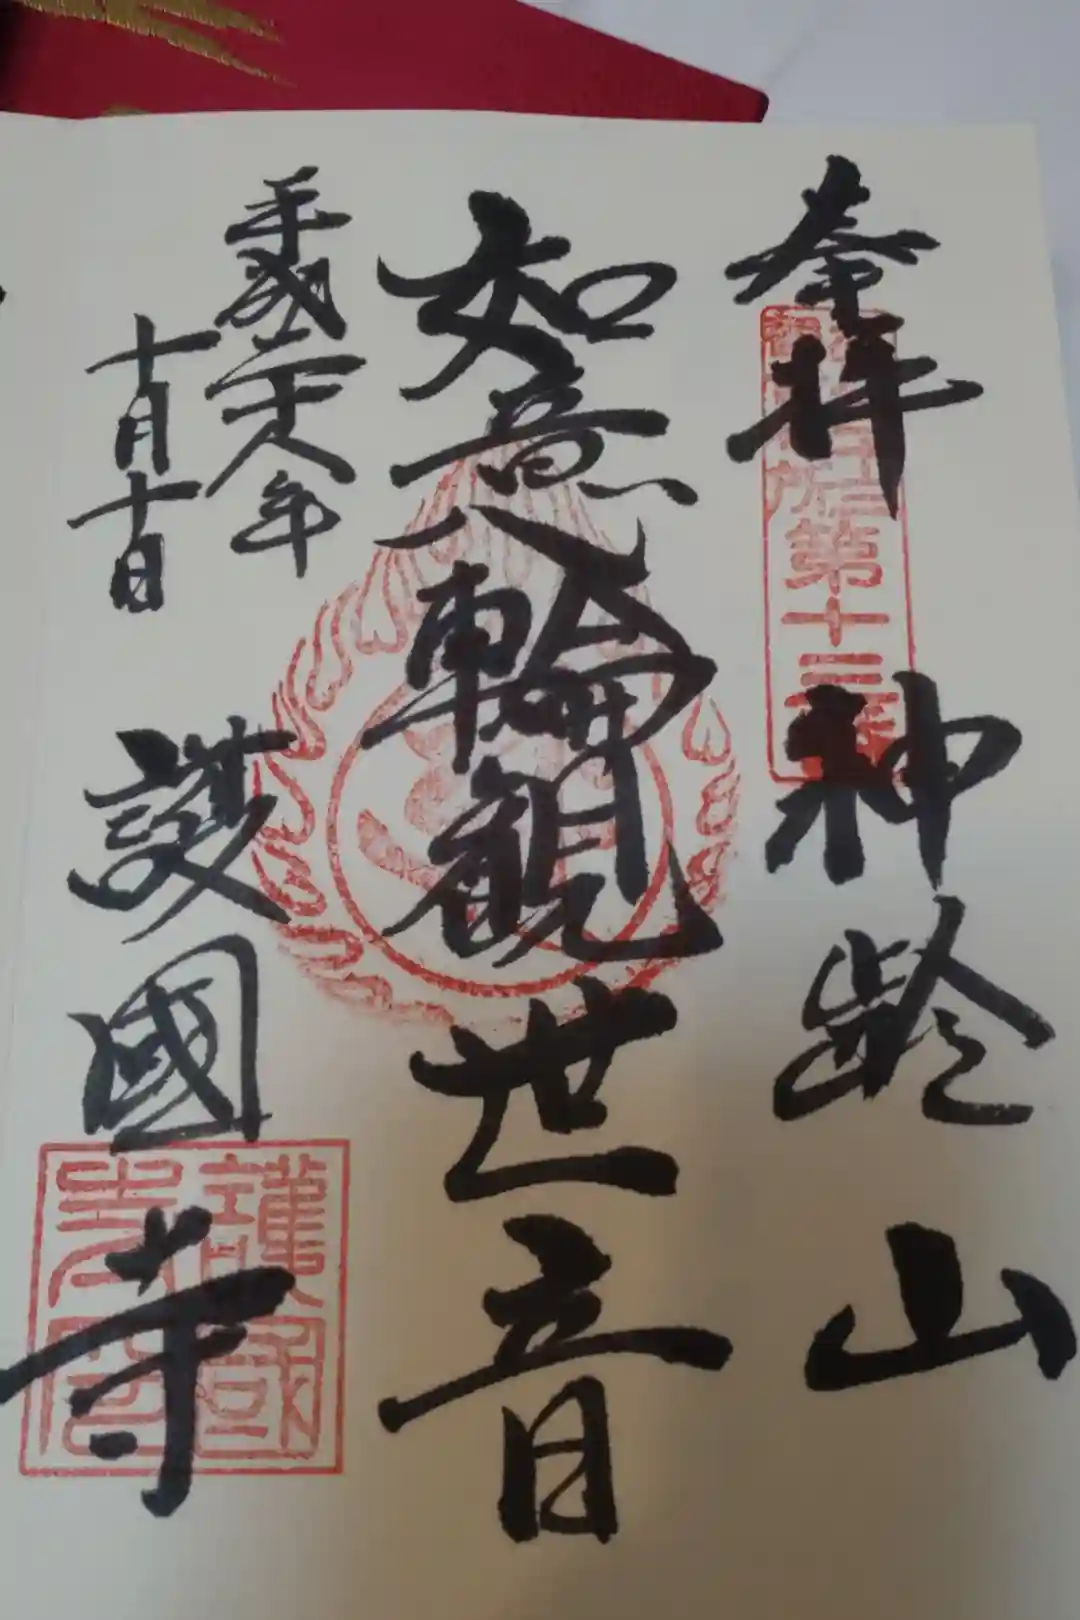 奉拝 神齢山
第十三番
如意輪観世音
平成二十八年
十月十日
護國寺
護國寺印